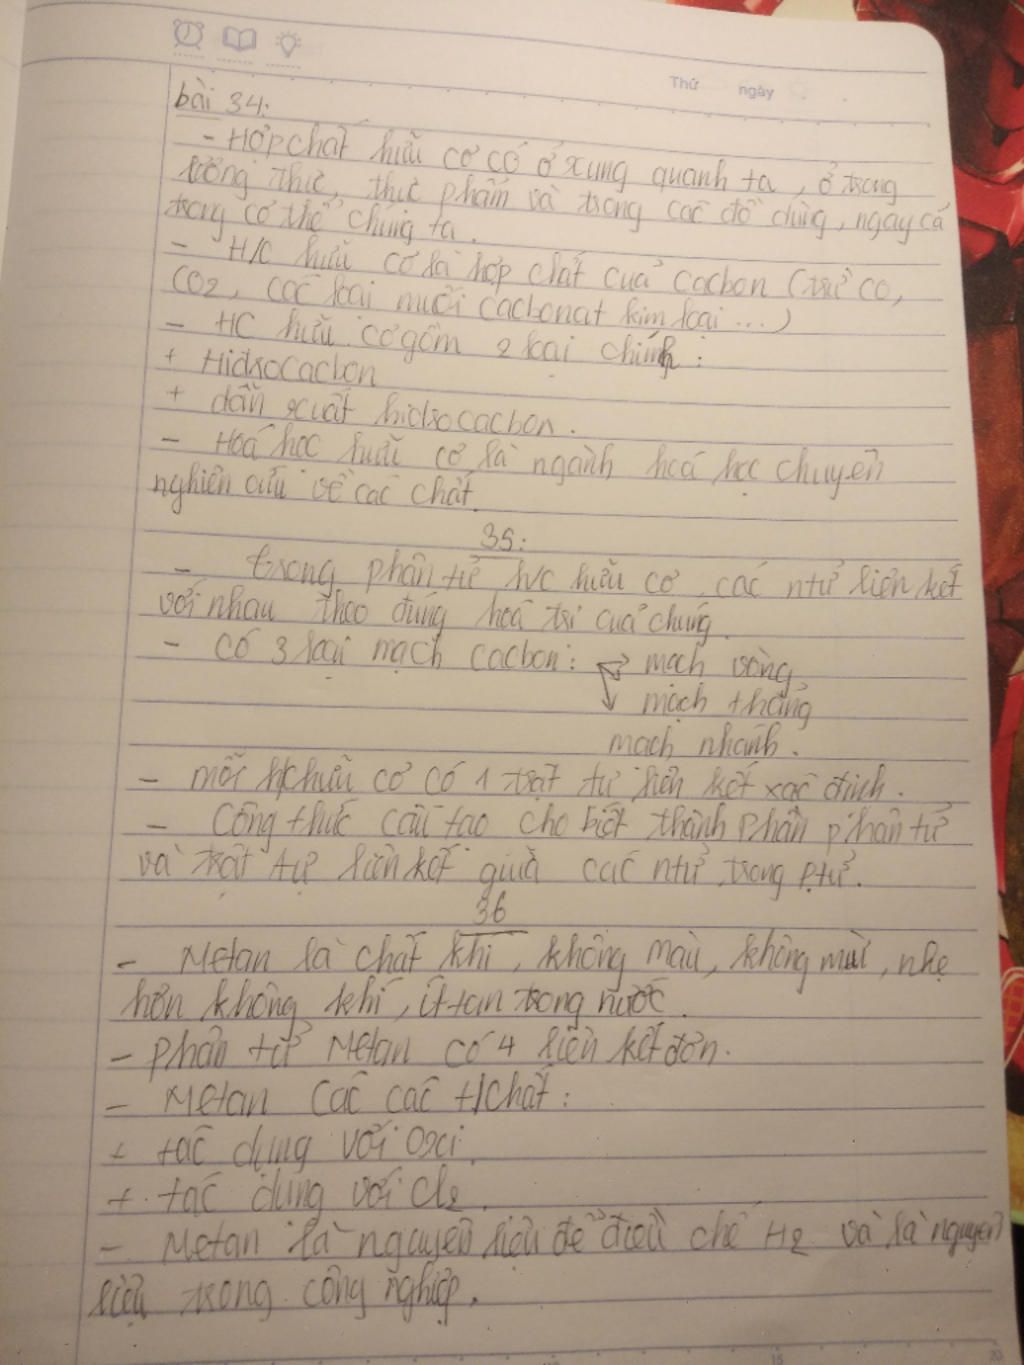 Thứ ngày
bài 34:
- Hợp chất hữu cơ có ở xung quanh ta, ở trong
lương thực, thực phẩm và trong các đồ dùng, ngay cả
trong cơ thể chúng ta.
- H/C hữu cơ là hợp chất của cacbon (trừ CO,
CO2, các loại muối cacbonat kim loại ...)
- HC hữu cơ gồm 2 loại chính:
+ Hiđrocacbon
+ dẫn xuất hiđrocacbon.
- Hoá học hữu cơ là ngành hoá học chuyên
nghiên cứu về các chất.
35:
- trong phân tử h/c hữu cơ, các ntử liên kết
với nhau theo đúng hoá trị của chúng.
- Có 3 loại mạch cacbon: → mạch vòng
↓ mạch thẳng
mạch nhánh.
- mỗi h/c hữu cơ có 1 trật tự liên kết xác định.
- Công thức cấu tạo cho biết thành phần phân tử
và trật tự liên kết giữa các ntử trong ptử.
36
- Metan là chất khí, không màu, không mùi, nhẹ
hơn không khí, ít tan trong nước.
- phân tử Metan có 4 liên kết đơn.
- Metan các các t/chất:
+ tác dụng với Oxi.
+ tác dụng với Cl2.
- Metan là nguyên liệu để điều chế H2 và là nguyên
liệu trong công nghiệp.